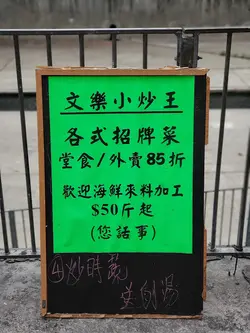 文樂小炒王
各式招牌菜
堂食/外賣85折
歡迎海鮮來料加工
$50斤起
(您話事)
炒時蔬